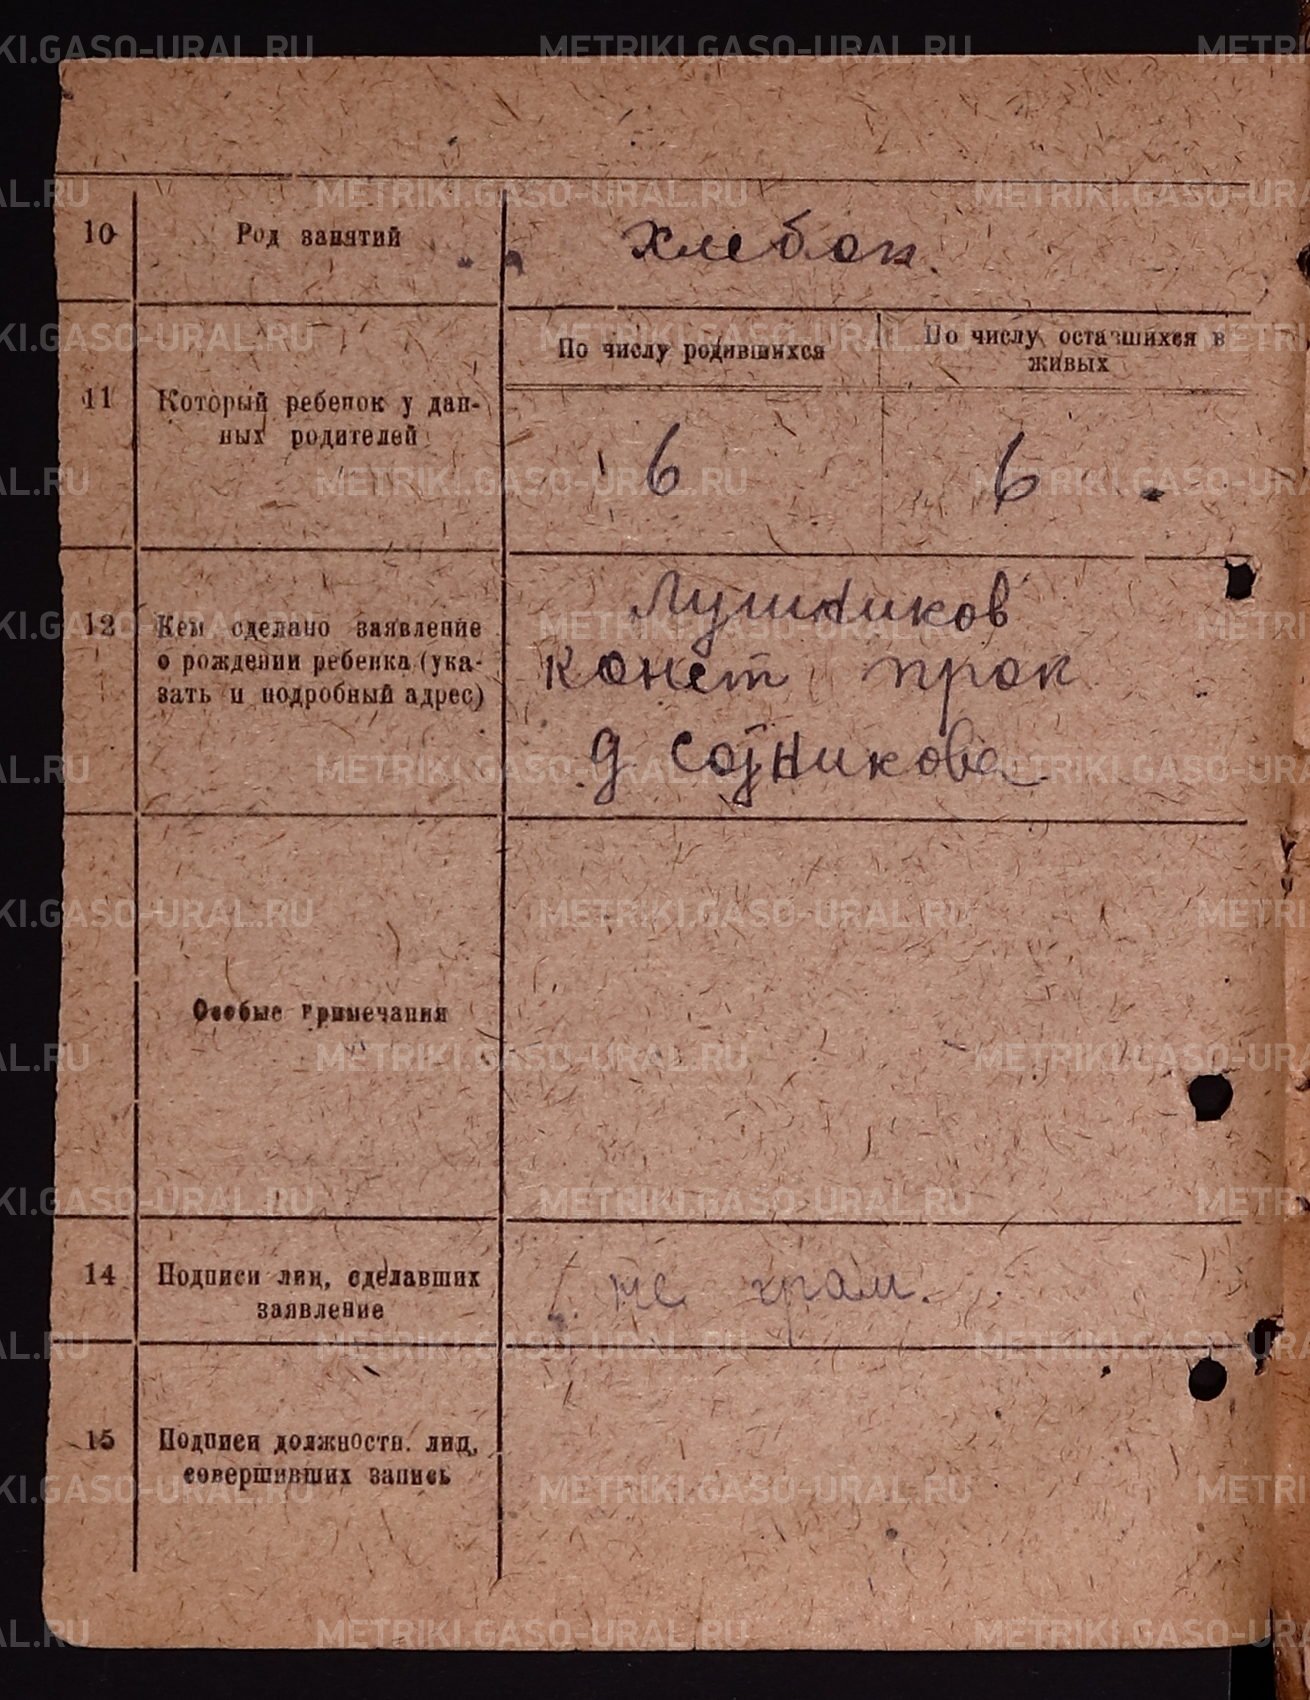 10 Род занятий Хлебоп.
По числу родившихся По числу оставшихся в живых
11 Который ребенок у дан-
ных родителей
6 6
12 Кем сделано заявление
о рождении ребенка (ука-
зать и подробный адрес)
Лушников
Конст прок
д Сойникова
Особые примечания
14 Подписи лиц, сделавших
заявление
не грам.
15 Подписи должностн. лиц,
совершивших запись
METRIKI.GASO-URAL.RU